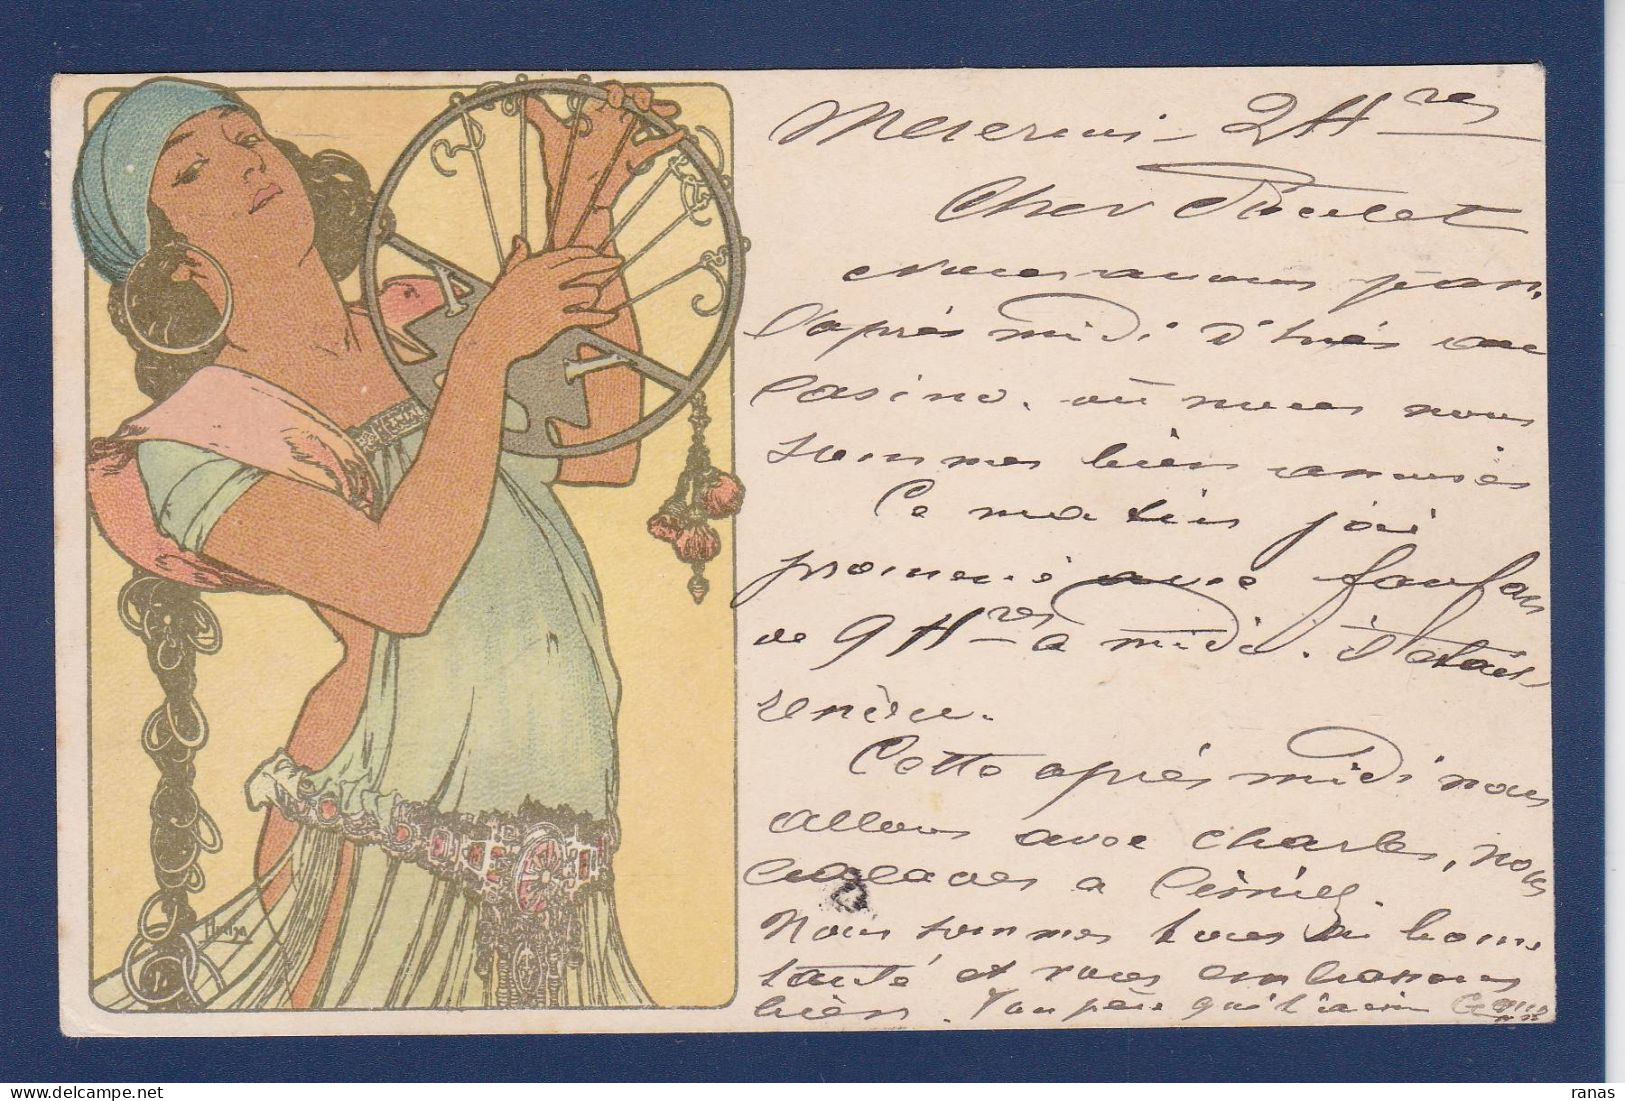 Mercredi 2 Hres
Cher Poulet
Nous avons passé
l'après midi d'hier au
casino. où nous nous
sommes bien amusés
Ce matin j'ai
promené avec fanfan
de 9 Hres à midi. il était
rendu.
Cette après midi nous
allons avec Charles, nous
à
Nous sommes tous en bonne
santé et vous embrassons
bien. Ton père qui t'aime
Mucha
ranas